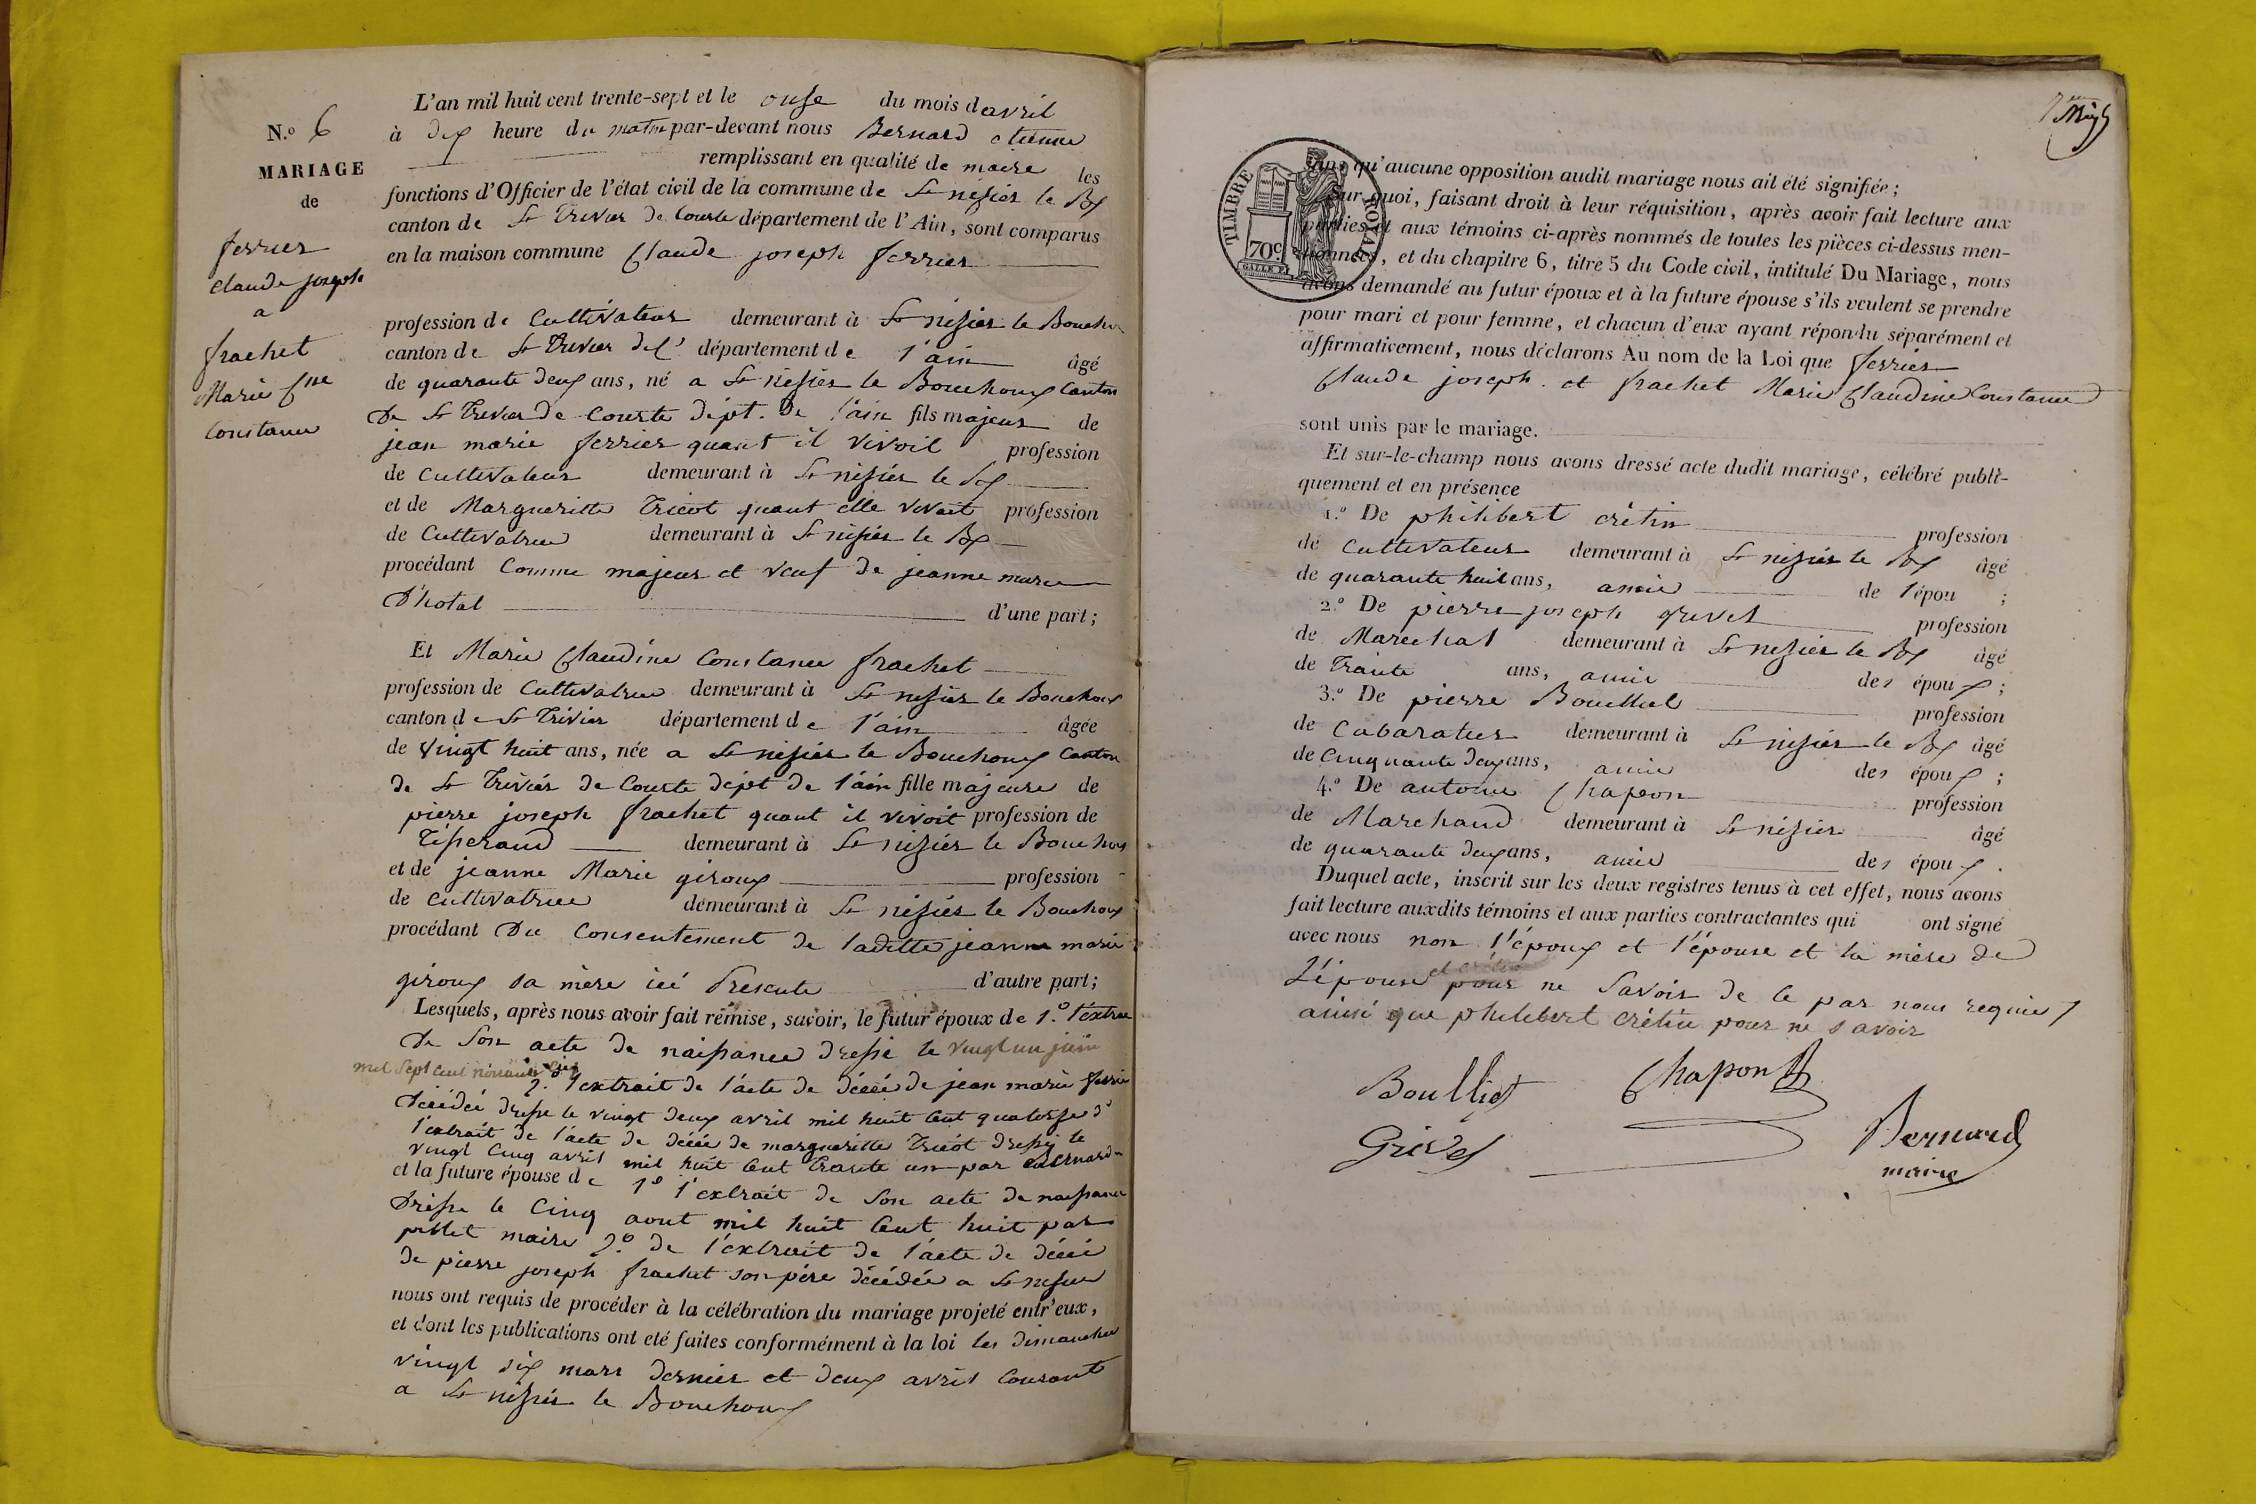 N.o 6
MARIAGE
de
ferrier
claude joseph
a
frachet
Marie Cne
Constance
L'an mil huit cent trente-sept et le onse du mois d avril
à dix heure du matin par-devant nous Bernard etienne
remplissant en qualité de maire les
fonctions d'Officier de l'état civil de la commune de St nisier le Bx
canton de St Trivier de Courte département de l'Ain, sont comparus
en la maison commune Claude joseph ferrier
profession de Cultivateur demeurant à St nisier le Bouchoux
canton de St Trivier de C département de l'ain âgé
de quarante deux ans, né a St nisier le Bouchoux Canton
De St Trivier de Courte dépt. De l'ain fils majeur de
jean marie ferrier quant il vivoit profession
de Cultivateur demeurant à St nisier le Bx
et de Margueritte Tricot quant elle vivait profession
de Cultivatrice demeurant à St nisier le Bx
procédant Comme majeur et veuf de jeanne marie
D'hotal d'une part;
Et Marie Claudine Constance frachet
profession de Cultivatrice demeurant à St nisier le Bouchoux
canton de St Trivier département de l'ain âgée
de vingt huit ans, née a St nisier le Bouchoux Canton
de St Trivier de Courte dépt de l'ain fille majeure de
pierre joseph frachet quant il vivoit profession de
Tisserand demeurant à St nisier le Bouchoux
et de jeanne Marie giroux profession
de Cultivatrice demeurant à St nisier le Bouchoux
procédant Du Consentement de laditte jeanne marie
giroux sa mère ici Presente d'autre part;
Lesquels, après nous avoir fait remise, savoir, le futur époux de 1.o l'extrait
De Son acte de naissance dressé le vingt un juin
mil sept cent
2.o l'extrait de l'acte de décé de jean marie ferrier
Décédé dressé le vingt deux avril mil huit Cent quatorse 3o
l'extrait de l'acte de décé de margueritte Tricot dressé le
vingt Cinq avril mil huit Cent trante un par Bernard
et la future épouse de 1o l'extrait de Son acte de naissance
Dressé le Cinq aout mil huit Cent huit par
maire 2.o de l'extrait de l'acte de décé
de pierre joseph frachet son père décédée a St nisier
nous ont requis de procéder à la célébration du mariage projeté entr'eux,
et dont les publications ont eté faites conformément à la loi les dimanches
vingt six mars dernier et deux avril Courant
a St nisier le Bouchoux
TIMBRE ROYAL
70c
sans qu'aucune opposition audit mariage nous ait été signifiée;
Sur quoi, faisant droit à leur réquisition, après avoir fait lecture aux
parties et aux témoins ci-après nommés de toutes les pièces ci-dessus men-
tionnées, et du chapitre 6, titre 5 du Code civil, intitulé Du Mariage, nous
avons demandé au futur époux et à la future épouse s'ils veulent se prendre
pour mari et pour femme, et chacun d'eux ayant répondu séparément et
affirmativement, nous déclarons Au nom de la Loi que ferrier
Claude joseph. et frachet Marie Claudine Constance
sont unis par le mariage.
Et sur-le-champ nous avons dressé acte dudit mariage, célébré publi-
quement et en présence
1.o De philibert crétin profession
de Cultivateur demeurant à St nisier le Bx âgé
de quarante huit ans, amie de l'épou ;
2.o De pierre joseph grivel profession
de Marechal demeurant à St nisier le Bx âgé
de Trante ans, amie des époux;
3.o De pierre Bouilliet profession
de Cabaratier demeurant à St nisier le Bx âgé
de Cinquante deux ans, amie des époux;
4.o De antoine Chapon profession
de Marchand demeurant à St nisier âgé
de quarante deux ans, amie des époux.
Duquel acte, inscrit sur les deux registres tenus à cet effet, nous avons
fait lecture auxdits témoins et aux parties contractantes qui ont signé
avec nous non l'époux et l'épouse et la mère de
L'épouse pour ne Savoir de ce par nous requies
ainsi que philibert crétin pour ne savoir
Boulliet
Chapon
Grivel
Bernard
maire